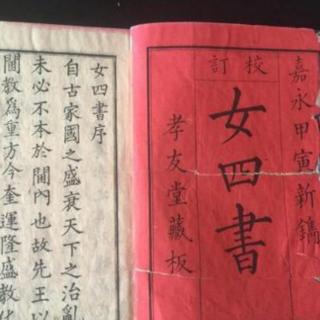 嘉永甲寅新鐫
校訂
女四書
孝友堂藏板
女四書序
自古家國之盛衰天下之治亂
未必不本於閫內也故先王以
閫教為重方今奎運隆盛教化